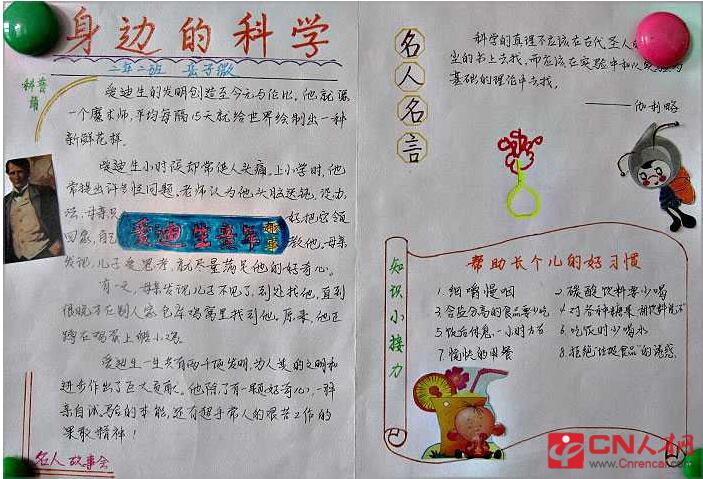 身边的科学
二年二班
爱迪生的发明创造至今无与伦比,他就像
一个魔术师,平均每隔15天就给世界绘制出一种
新鲜花样。
爱迪生小时候却常使人头痛。上小学时,他
常提出许多怪问题,老师认为他头脑迷钝,没办
法,母亲只
好把它领
回家,自己
教他。母亲
爱迪生童年
故事
发现,儿子爱思考,就尽量满足他的好奇心。
有一天,母亲发现儿子不见了,到处找他,直到
很晚才在别人家仓库鸡窝里找到他。原来,他正
蹲在鸡蛋上孵小鸡。
爱迪生一生共有两千项发明,为人类的文明和
进步作出了巨大贡献。他除了有一颗好奇心,一种
亲自试验的本能,还有超乎常人的艰苦工作的
果敢精神!
名人故事会
名人名言
科学的真理不应该在古代圣人
尘的书上去找,而应该在实验中和以实验为
基础的理论中去找。
——伽利略
知识小接力
帮助长个儿的好习惯
1.细嚼慢咽
2.碳酸饮料要少喝
3.含盐分高的食品要少吃
4.对各种糖果、甜饮料说“不”
5.饭后休息一小时左右
6.吃饭时少喝水
7.愉快的用餐
8.拒绝“垃圾食品”的诱惑
CN人才网
www.Cnrencai.com